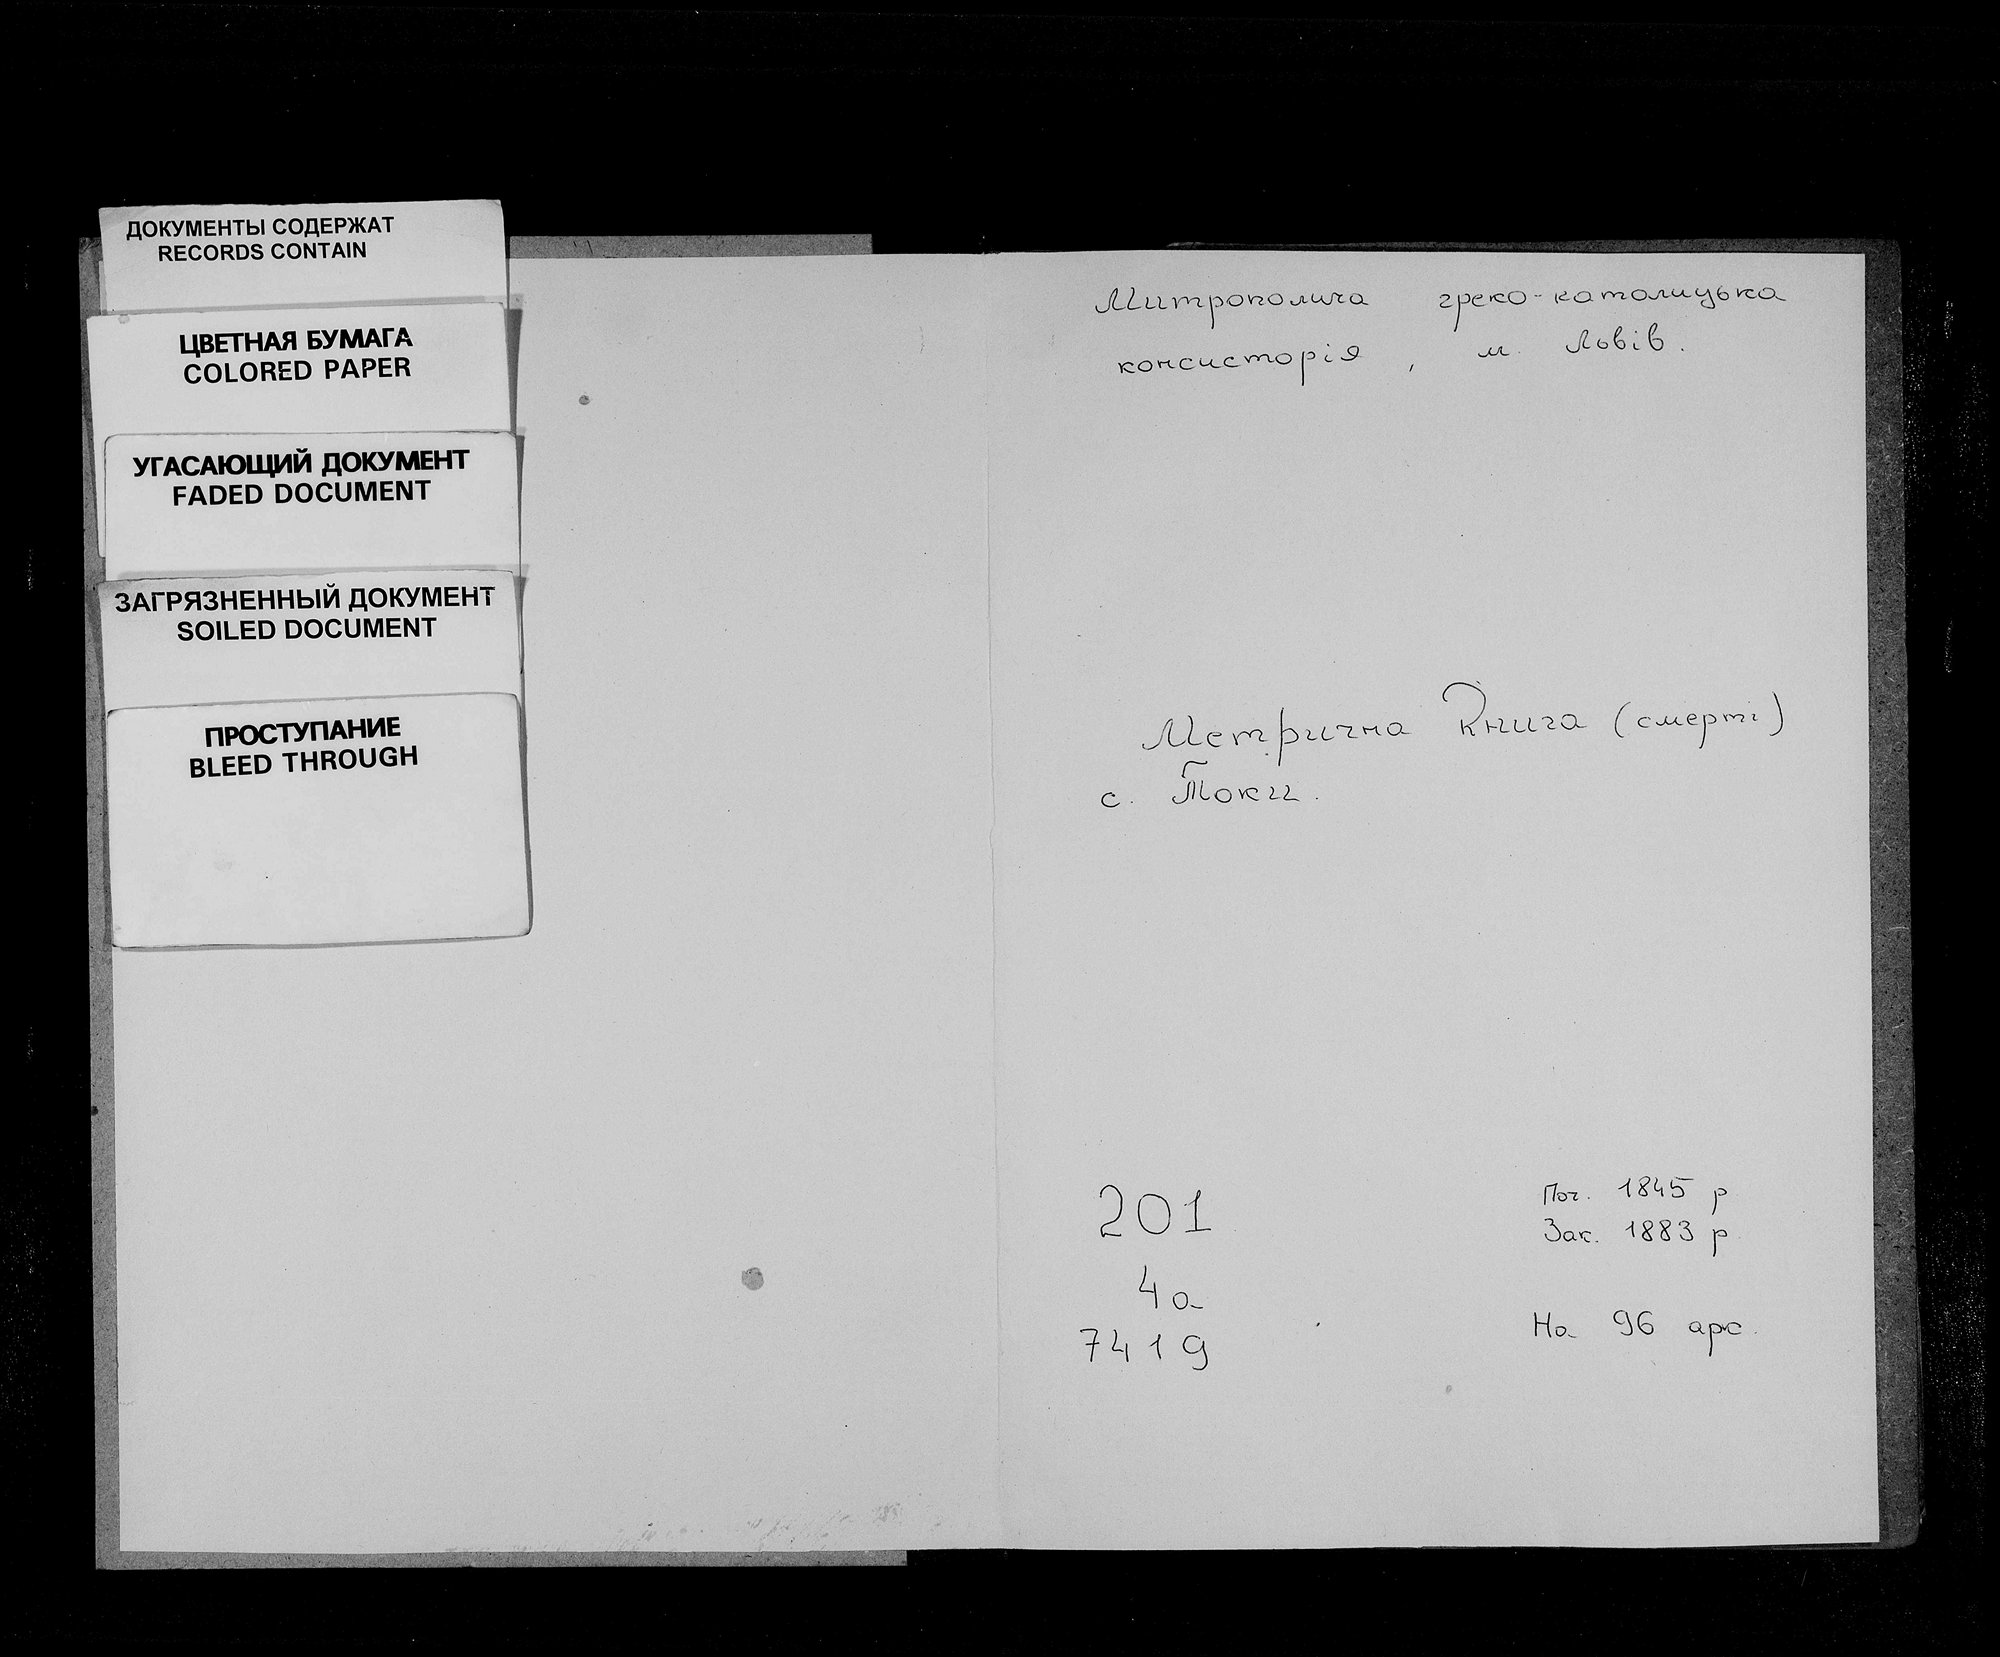 ДОКУМЕНТЫ СОДЕРЖАТ
RECORDS CONTAIN
ЦВЕТНАЯ БУМАГА
COLORED PAPER
УГАСАЮЩИЙ ДОКУМЕНТ
FADED DOCUMENT
ЗАГРЯЗНЕННЫЙ ДОКУМЕНТ
SOILED DOCUMENT
ПРОСТУПАНИЕ
BLEED THROUGH
Митрополича греко-католицька
консисторія, м. Львів.
Метрична Книга (смерті)
с. Токи.
201
4а
7419
Поч. 1845 р
Зак. 1883 р.
На 96 арк.